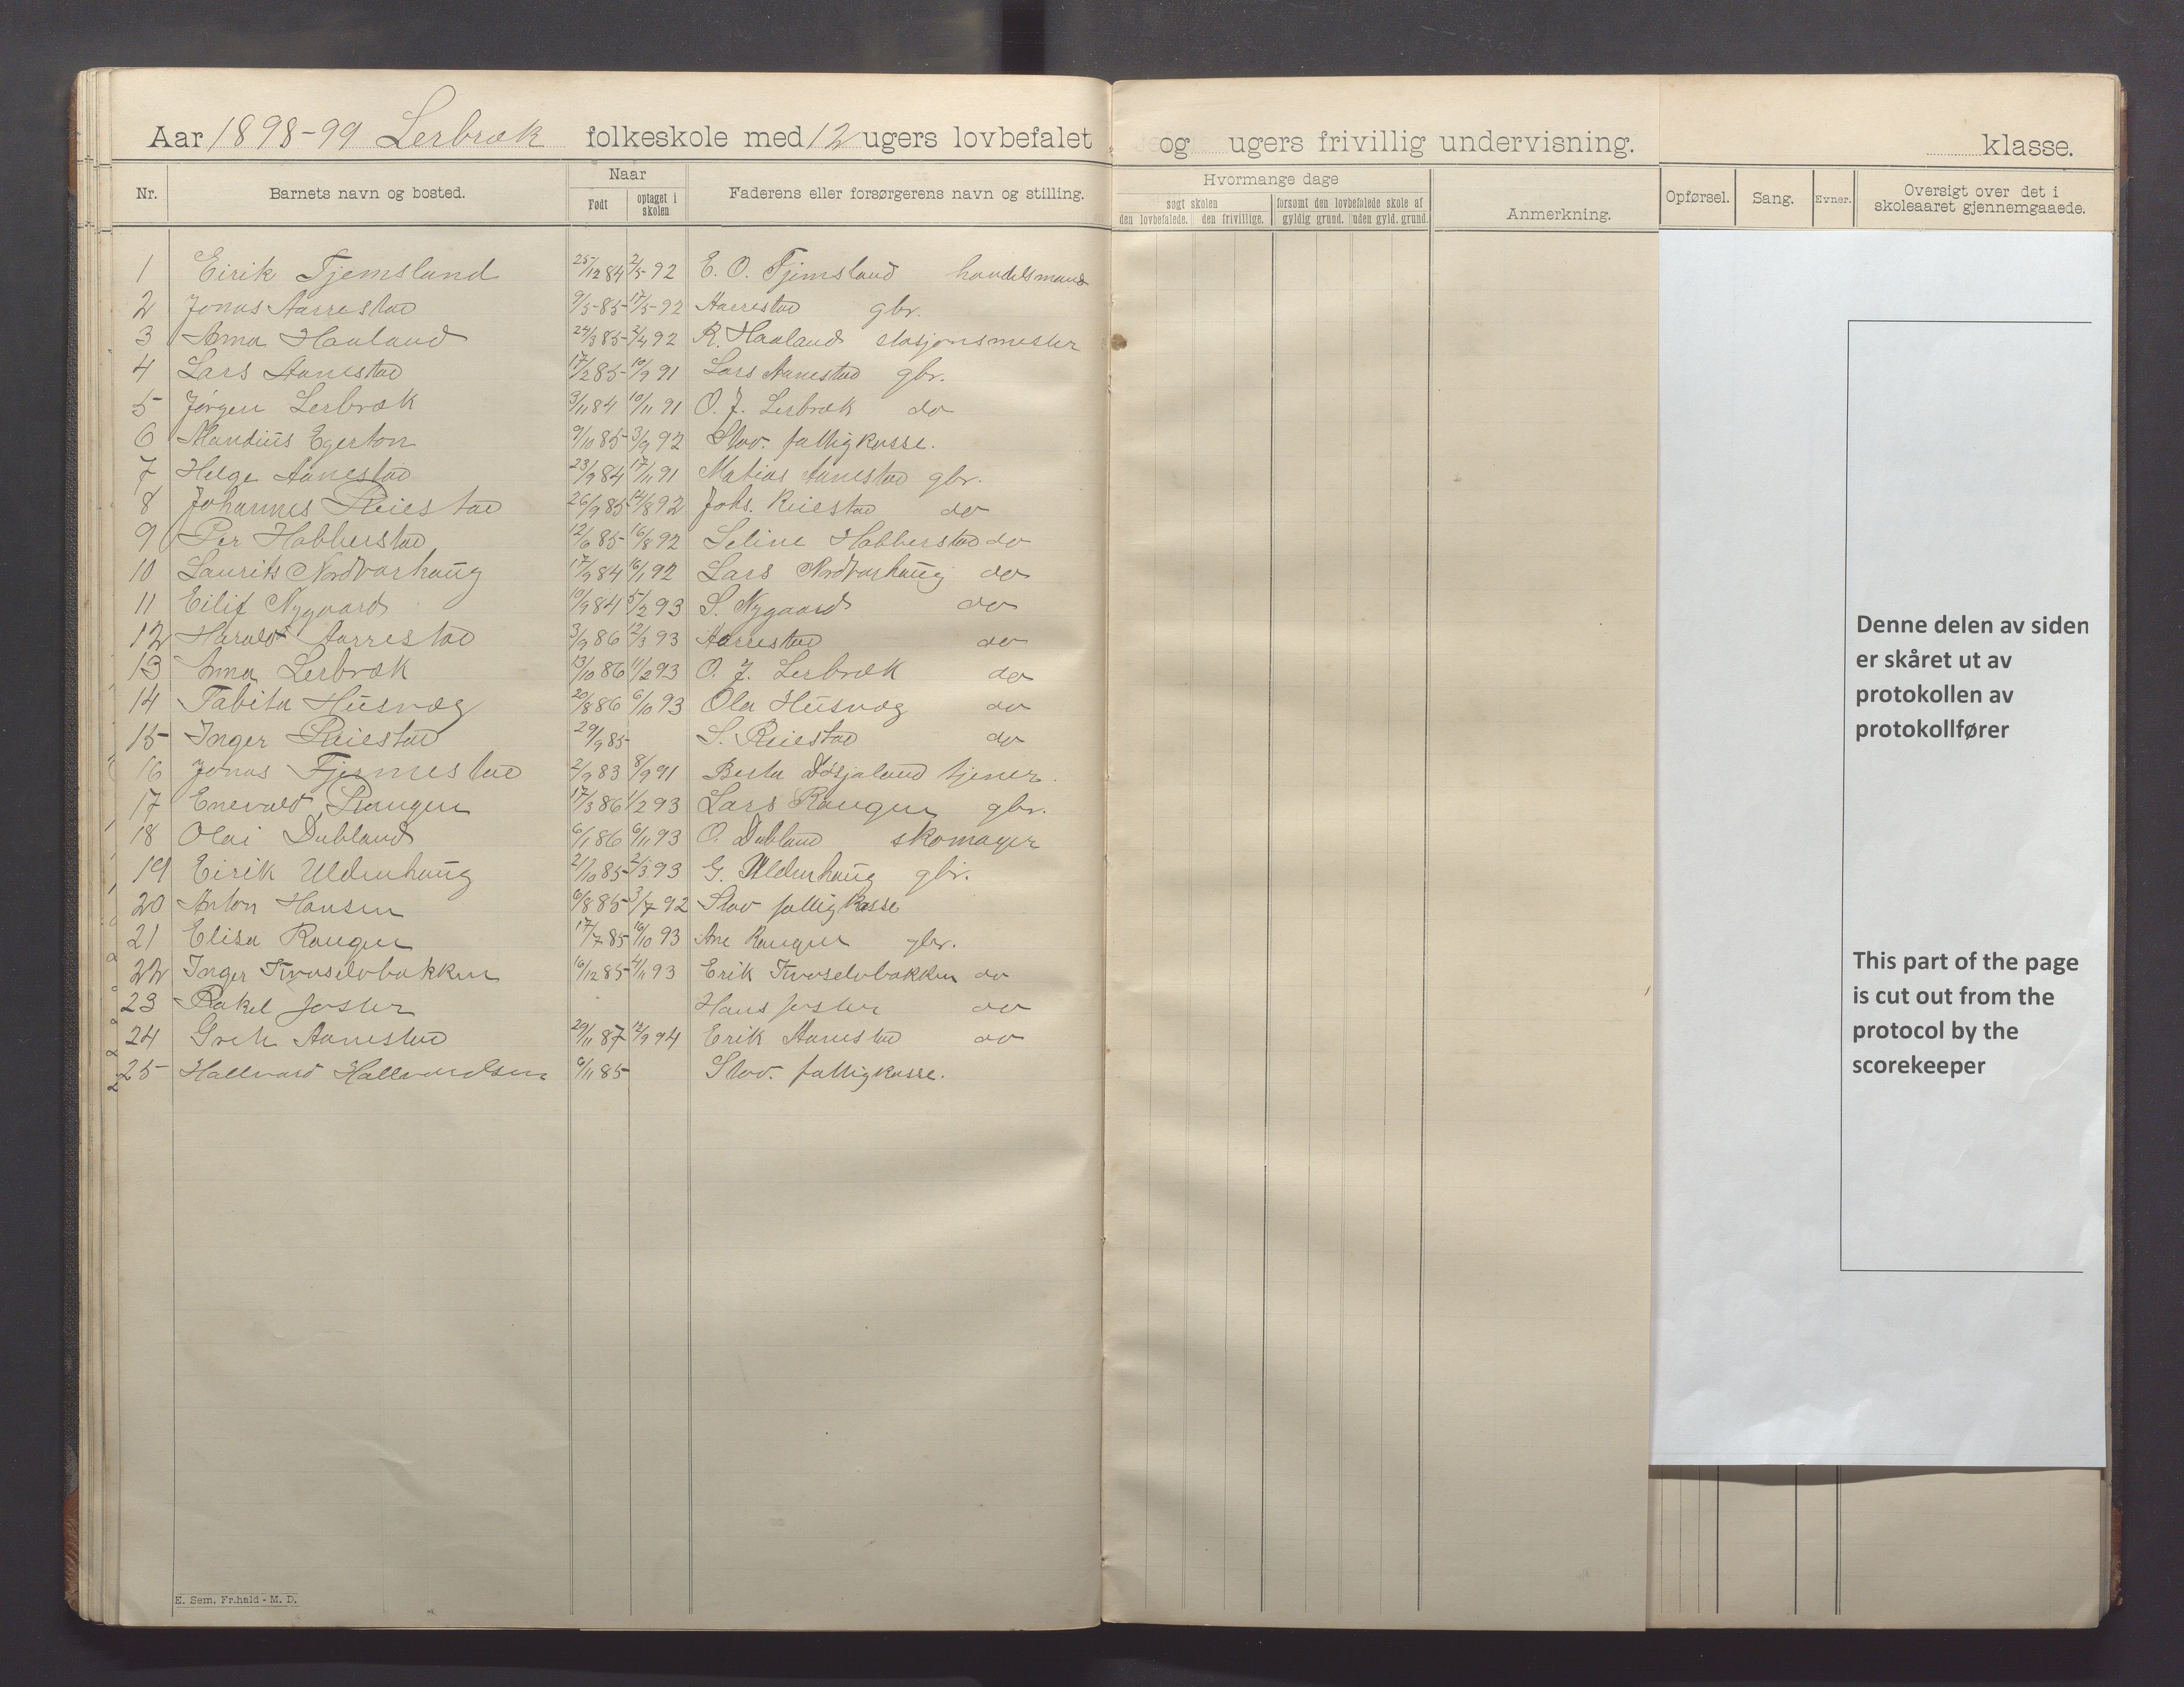 Aar 1898-99 Lerbræk folkeskole med 12 ugers lovbefalet og ugers frivillig undervisning. klasse.
Nr. Barnets navn og bosted. Naar Født optaget i skolen Faderens eller forsørgerens navn og stilling. Hvormange dage søgt skolen den lovbefalede. den frivillige. forsømt den lovbefalede skole af gyldig grund. uden gyld. grund. Anmerkning. Opførsel. Sang. Evner. Oversigt over det i skoleaaret gjennemgaaede.
1 Eirik Tjemsland 25/12 84 2/5-92 E. O. Tjemsland handelsmand
2 Jonas Aarrestad 9/5-85 17/5-92 Aarrestad gbr.
3 Anna Haaland 24/3 85 2/4 92 R. Haaland stasjonsmester
4 Lars Aanestad 17/2 85 10/9 91 Lars Aanestad gbr.
5 Jørgen Lerbræk 3/11 84 10/11 91 O. J. Lerbræk do
6 Mandius Egerton 9/10 85 3/9 92 Stav. fattigkasse.
7 Helge Aanestad 23/9 84 17/11 91 Matias Aanestad gbr.
8 Johannes Reiestad 26/9 85 14/8 92 Johs. Reiestad do
9 Per Hobberstad 12/6 85 16/8 92 Seline Hobberstad do
10 Laurits Nordvarhaug 17/9 84 16/1 92 Lars Nordvarhaug do
11 Eilif Nygaard 10/9 84 5/2 93 S. Nygaard do
12 Harald Aarrestad 3/9 86 12/3 93 Aarrestad do
13 Anna Lerbræk 13/10 86 11/2 93 O. J. Lerbræk do
14 Tabita Husvæg 20/8 86 6/10 93 Ola Husvæg do
15 Inger Reiestad 29/9 85 S. Reiestad do
16 Jonas Tjemestad 2/9 83 8/9 91 Berta Døsjaland tjener.
17 Enevald Raugen 17/3 86 1/2 93 Lars Raugen gbr.
18 Olai Dubland 6/1 86 6/11 93 O. Dubland skomager
19 Eirik Uldenhaug 21/10 85 2/3 93 G. Uldenhaug gbr.
20 Anton Hansen 6/8 85 3/7 92 Stav fattigkasse
21 Elisa Raugen 17/7 85 16/10 93 Ane Raugen gbr.
22 Inger Kvaselvbakken 16/12 85 4/11 93 Erik Kvaselvbakken do
23 Rakel Joster Hans Joster do
24 Grete Aanestad 29/11 87 12/9 94 Erik Aanestad do
25 Hallvard Hallvardsen 9/11 85 Stav. fattigkasse.
Denne delen av siden
er skåret ut av
protokollen av
protokollfører
This part of the page
is cut out from the
protocol by the
scorekeeper
E. Sem, Fr.hald - M. D.